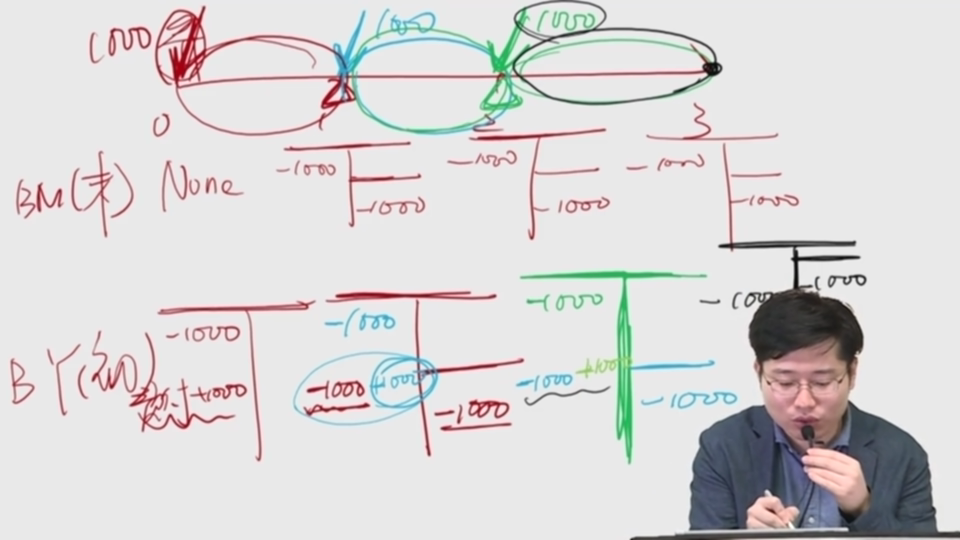 1000 1000 1000
0 2 3
-1000 -1000 -1000
BM(末) None -1000 -1000 -1000
-1000 -1000
-1000 -1000 -1000
B Y(初) +1000 -1000 +1000 -1000 +1000
-1000 -1000